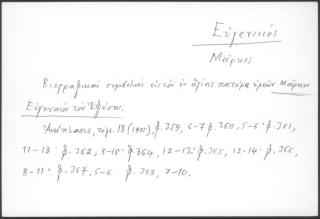 Εὐγενικός
Μᾶρκος
Βιογραφικαὶ συμβολαὶ εἰς τὸν ἐν ἁγίοις πατέρα ἡμῶν Μᾶρκον
Εὐγενικὸν τὸν Ἐφέσου.
Ἀνάπλασις, τόμ. 18 (1905), φ. 359, 6-7· φ. 360, 5-6· φ. 361,
11-13· φ. 362, 8-10· φ. 364, 12-13· φ. 365, 12-14· φ. 366,
8-11· φ. 367, 5-6· φ. 368, 7-10.